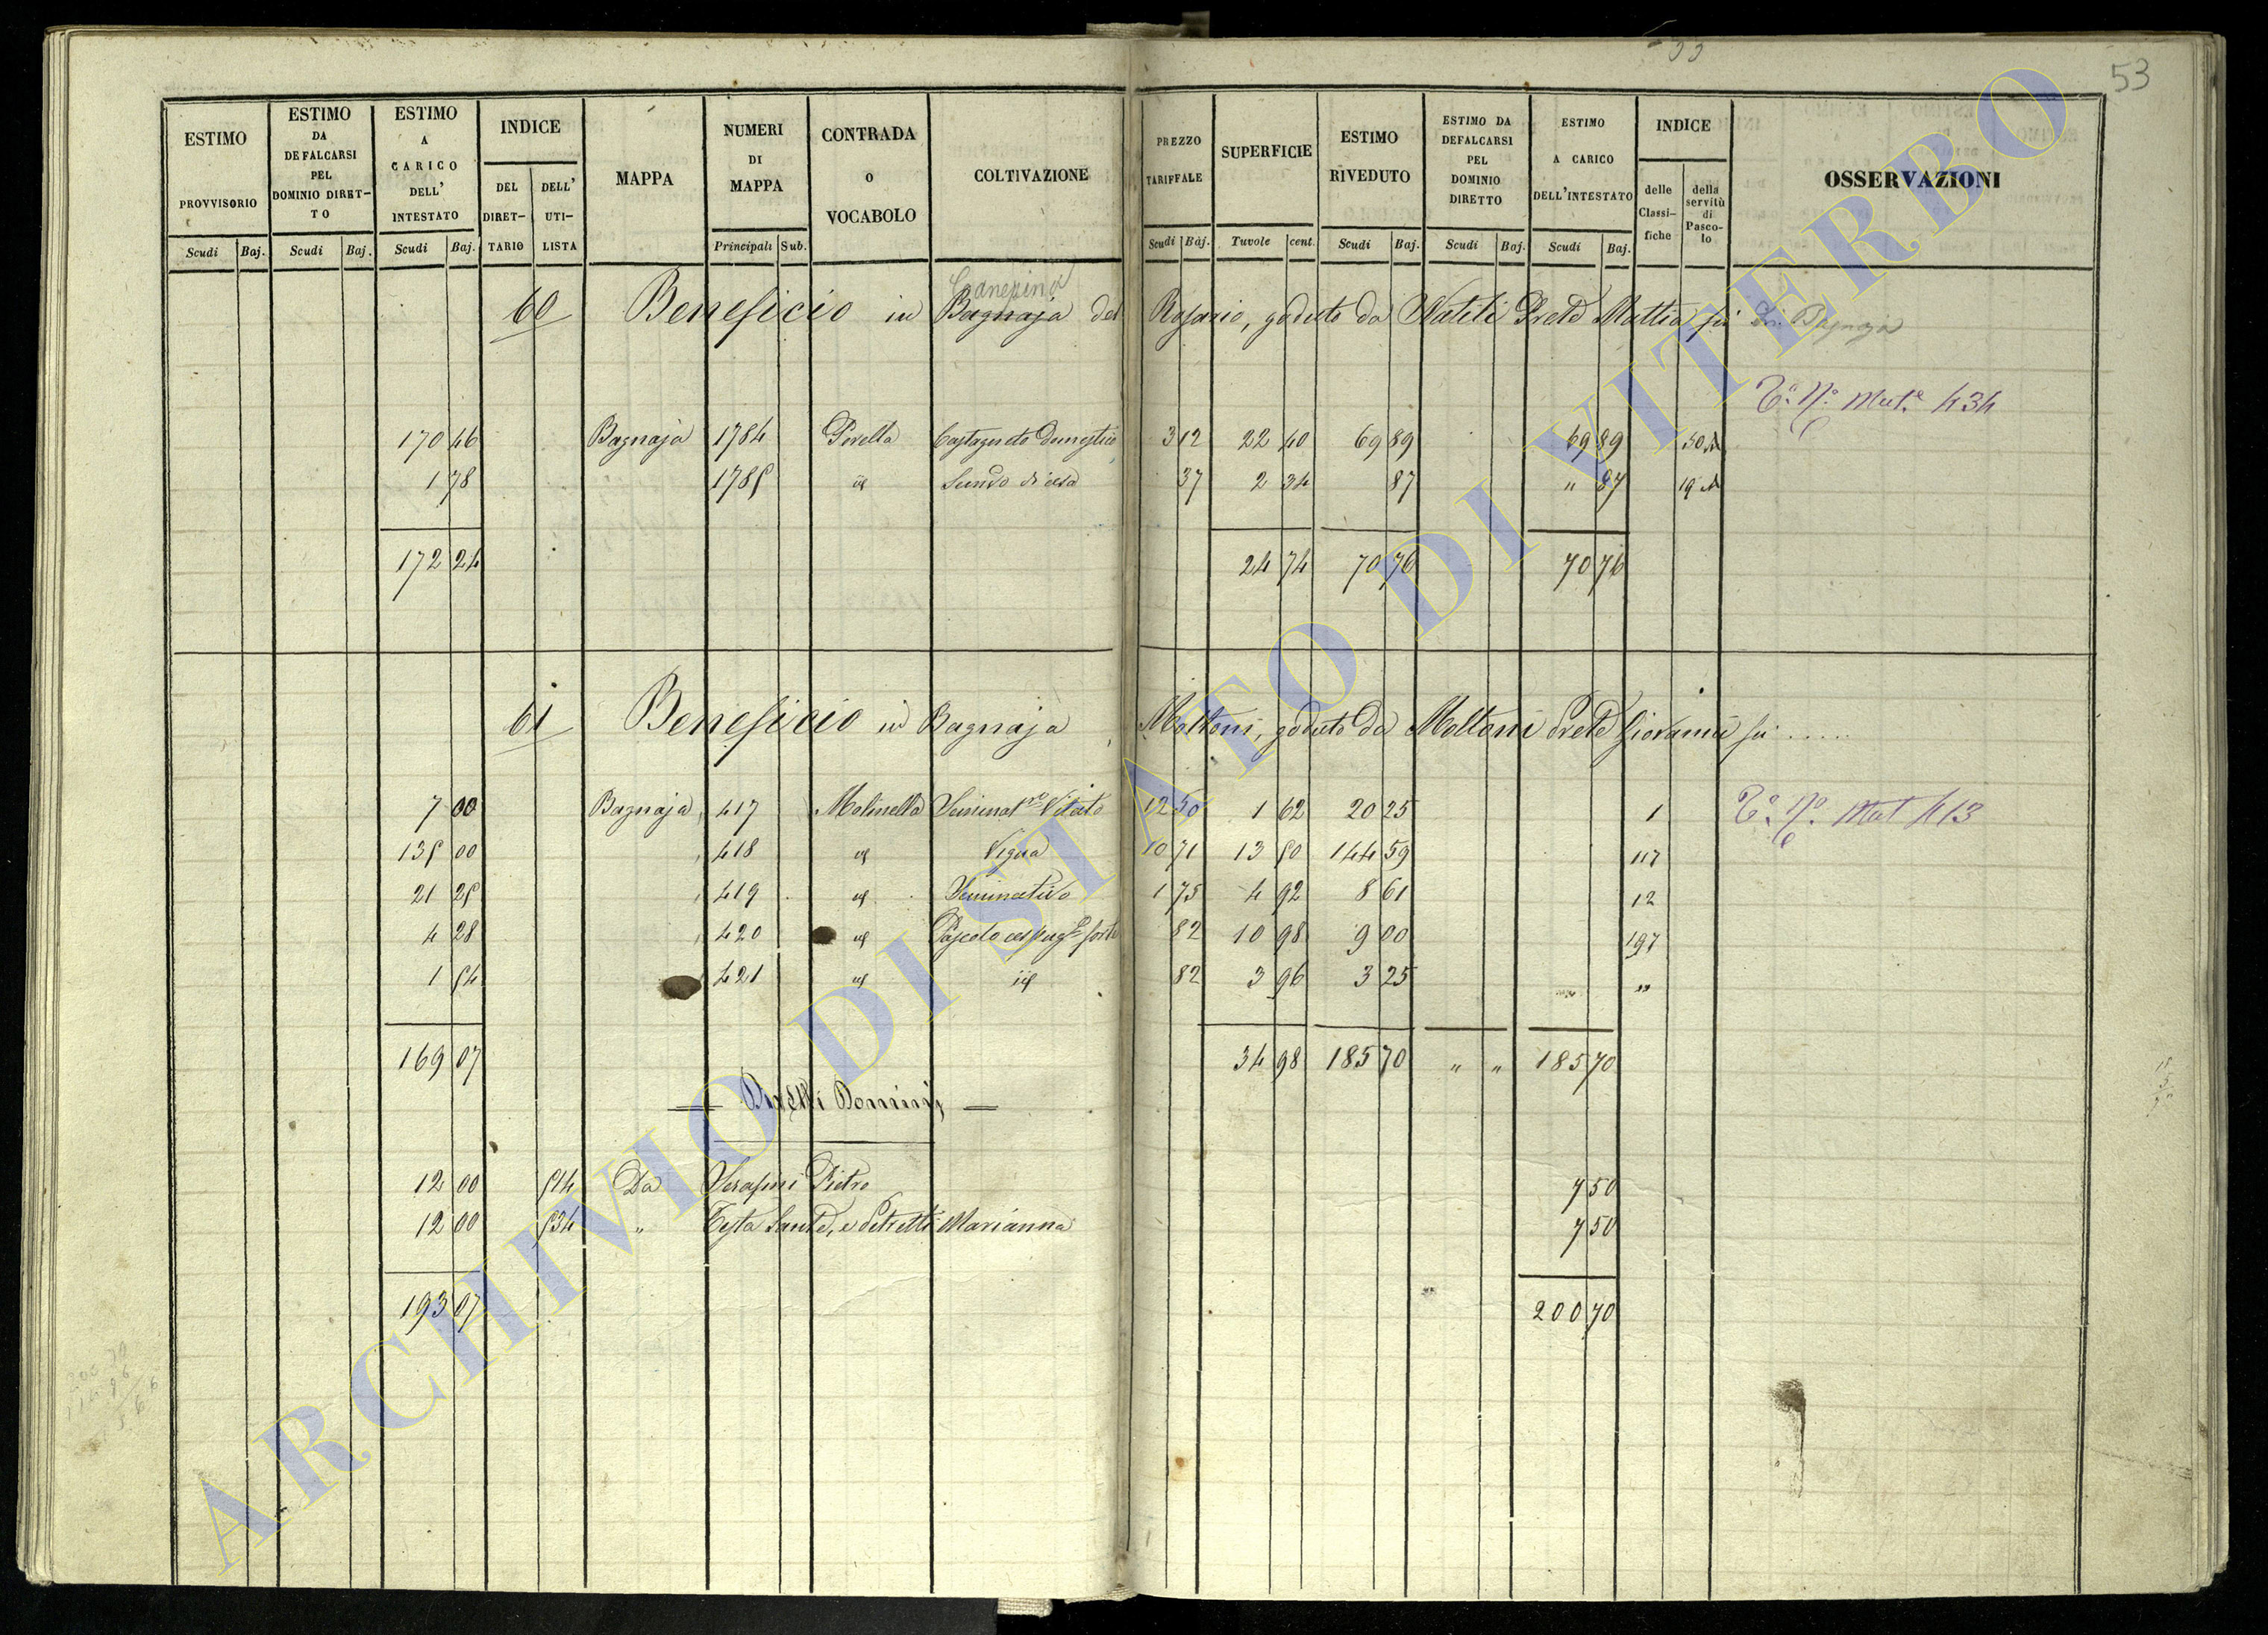 53
ESTIMO PROVVISORIO
ESTIMO DA DEFALCARSI PEL DOMINIO DIRETTO
ESTIMO A CARICO DELL' INTESTATO
INDICE
DEL DIRETTARIO
DELL' UTILISTA
MAPPA
NUMERI DI MAPPA
CONTRADA O VOCABOLO
COLTIVAZIONE
PREZZO TARIFFALE
SUPERFICIE
ESTIMO RIVEDUTO
ESTIMO DA DEFALCARSI PEL DOMINIO DIRETTO
ESTIMO A CARICO DELL'INTESTATO
INDICE
delle Classifiche
della servitù di Pascolo
OSSERVAZIONI
Scudi Baj. Scudi Baj. Scudi Baj. Principali Sub. Scudi Baj. Tavole cent. Scudi Baj. Scudi Baj. Scudi Baj.
Canepina
60 Beneficio in Bagnaja del Rosario, goduto da Natili Prete Mattia fu
T.a N.o Mut.e 434
170 46 Bagnaja 1784 castagneto domestico 3 12 22 40 69 89 69 89
1 78 1785 id 37 2 34 87 " 87
172 24 24 74 70 76 70 76
61 Beneficio in Bagnaja Moltoni, goduto da Moltoni Prete Giovanni fu .....
7 00 Bagnaja 417 Molinella Seminat.vo Vitato 12 50 1 62 20 25 1
Mut 413
135 00 418 id Vigna 10 71 13 50 144 59 117
21 25 419 id Seminativo 1 75 4 92 8 61 12
4 28 420 id Pascolo cespug.o forte 82 10 98 9 00 197
1 54 421 id id 82 3 96 3 25 "
169 07 34 98 185 70 " " 185 70
Diretti Dominj
12 00 514 Da Serafini Pietro 7 50
12 00 534 " Testa Sante, e Petretti Marianna 7 50
193 07 200 70
ARCHIVIO DI STATO DI VITERBO